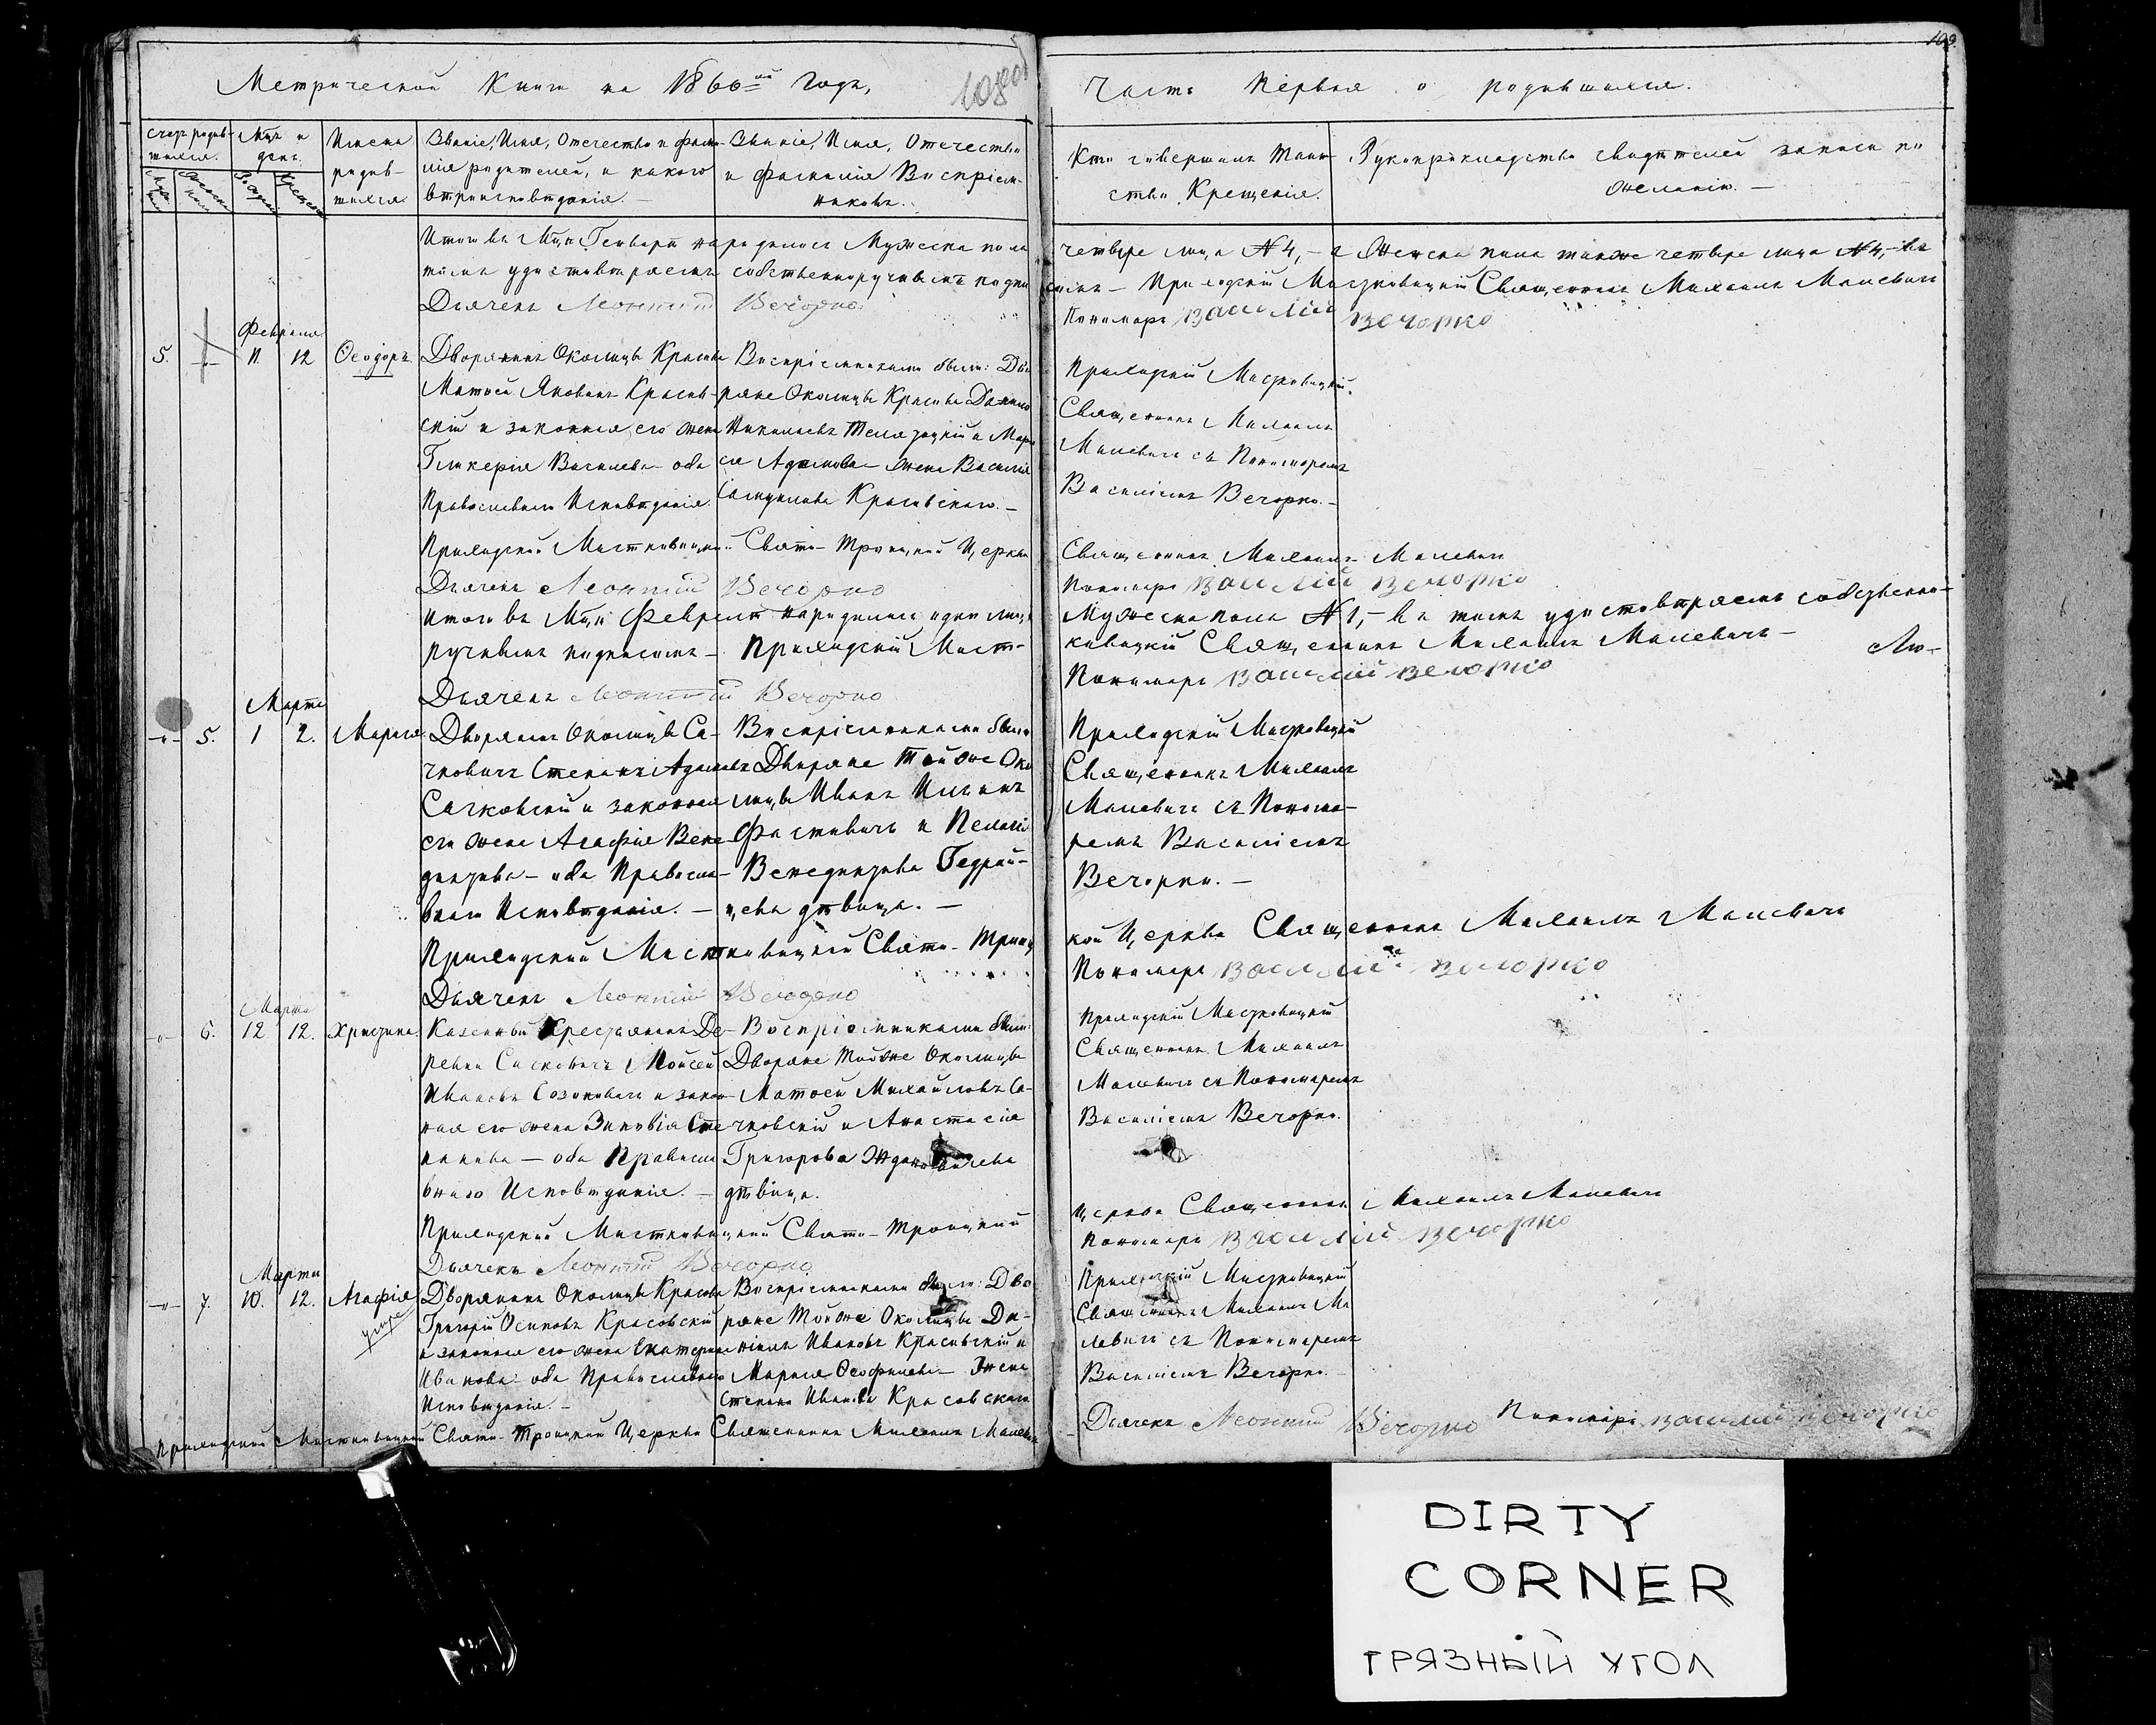 Метрической Книги на 1866ой Годъ,
108 об
Часть Первая о родившихся.
109.
Счетъ родив-
шихся.
Мцъ и
день.
Имена
родив-
шихся
Званіе, Имя, Отечество и фами-
лія родителей, и какого
вѣроисповѣданія.
Званіе, Имя, Отечество
и Фамилія Воспріем-
никовъ.
Кто совершалъ Таин-
ство Крещенія.
Рукоприкладство свидѣтелей записи по
желанію. —
Итого въ Мцѣ Генварѣ народилось Мужеска пола
четыре лица № 4, — а Женска пола также четыре лица № 4, — въ
томъ удостовѣряемъ собственноручнымъ подпи
сомъ — Приходскій Священникъ Михаилъ Малевичъ
Дьячекъ Леонтій Вечорко
Пономарь Василій Вечорко
Февраля
5. 11 12 Ѳеодоръ
Дворянинъ Околицы Красова
Матѳей Яковлевъ Красов-
скій и законная его жена
Гликерія Васильева оба
Православнаго Исповѣданія.
Воспріемниками были: Дво
ряне Околицы Красова
Николаевъ и Мари
ся Адамова жена Василія
Самуилова Красовскаго. —
Приходскій
Священникъ Михаилъ
Малевичъ съ Пономаремъ
Василіемъ Вечорко. —
Приходской Свято-Троицкой Церкви
Священникъ Михаилъ Малевичъ
Дьячекъ Леонтій Вечорко
Пономарь Василій Вечорко
Итого въ Мцѣ Февралѣ народилось одно лицо
Мужеска пола № 1, — въ томъ удостовѣряемъ собственно-
ручнымъ подписомъ — Приходскій Мист-
ковицкій Священникъ Михаилъ Малевичъ —
Дьячекъ Леонтій Вечорко
Пономарь Василій Вечорко
Марта
5. 1 2. Марія
Дворянинъ Околицы Са-
чковичъ Степанъ Адамовъ
Сачковскій и законная
его жена Агафія Вене
диктова — оба Правосла-
внаго Исповѣданія. —
Воспріемниками были
Дворяне Той же Око
лицы Иванъ
и Пелагія
Венедиктова
дѣвица. —
Приходскій
Священникъ Михаилъ
Малевичъ съ Понома-
ремъ Василіемъ
Вечорко. —
Приходской Мистковицкой Свято-Троиц
кой Церкви Священникъ Михаилъ Малевичъ
Дьячекъ Леонтій Вечорко
Пономарь Василій Вечорко
Марта
6. 12 12. Христина
Казенный Крестьянинъ Де-
ревни Сачковичъ Моисей
Ивановъ и закон
ная его жена Зиновія Сте
панова — оба Правосла
внаго Исповѣданія. —
Воспріемниками были:
Дворяне Той же Околицы
Матѳей Михайловъ Са-
чковскій и Анастасія
Григорова
дѣвица.
Приходскій
Священникъ Михаилъ
Малевичъ съ Пономаремъ
Василіемъ Вечорко.
Приходской Мистковицкой Свято-Троицкой
Церкви Священникъ Михаилъ Малевичъ
Дьячекъ Леонтій Вечорко
Пономарь Василій Вечорко
Марта
7. 10. 12. Агафія
умре
Дворянинъ Околицы Красова
Григорій Осиповъ Красовскій
и законная его жена Екатерина
Иванова оба Православнаго
Исповѣданія. —
Воспріемниками были: Дво
ряне Той же Околицы Да-
ніилъ Ивановъ Красовскій и
Марія Ѳеофилова — Жена
Степана Иванова Красовскаго
Приходскій
Священникъ Михаилъ Ма
левичъ съ Пономаремъ
Василіемъ Вечорко.
Приходской Мистковицкой Свято-Троицкой Церкви Священникъ Михаилъ Малевич
Дьячекъ Леонтій Вечорко Пономарь Василій Вечорко
DIRTY
CORNER
ГРЯЗНЫЙ УГОЛ